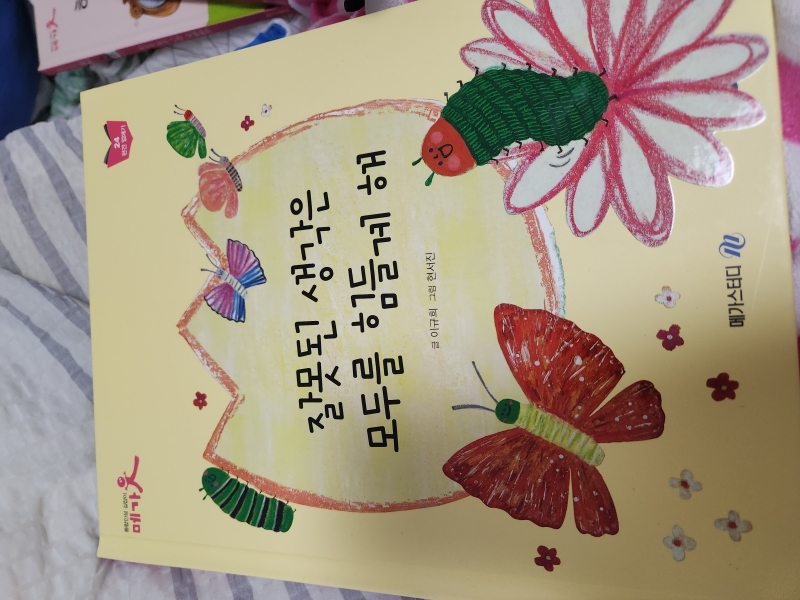 24
편견 없애기
잘못된 생각은
모두를 힘들게 해
글 이규희 그림 현서진
메가스터디
메가옷